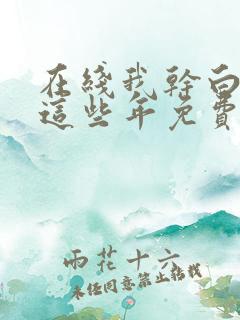 在綫我幹白
這些年免費
雨花十六
未經同意禁止轉載